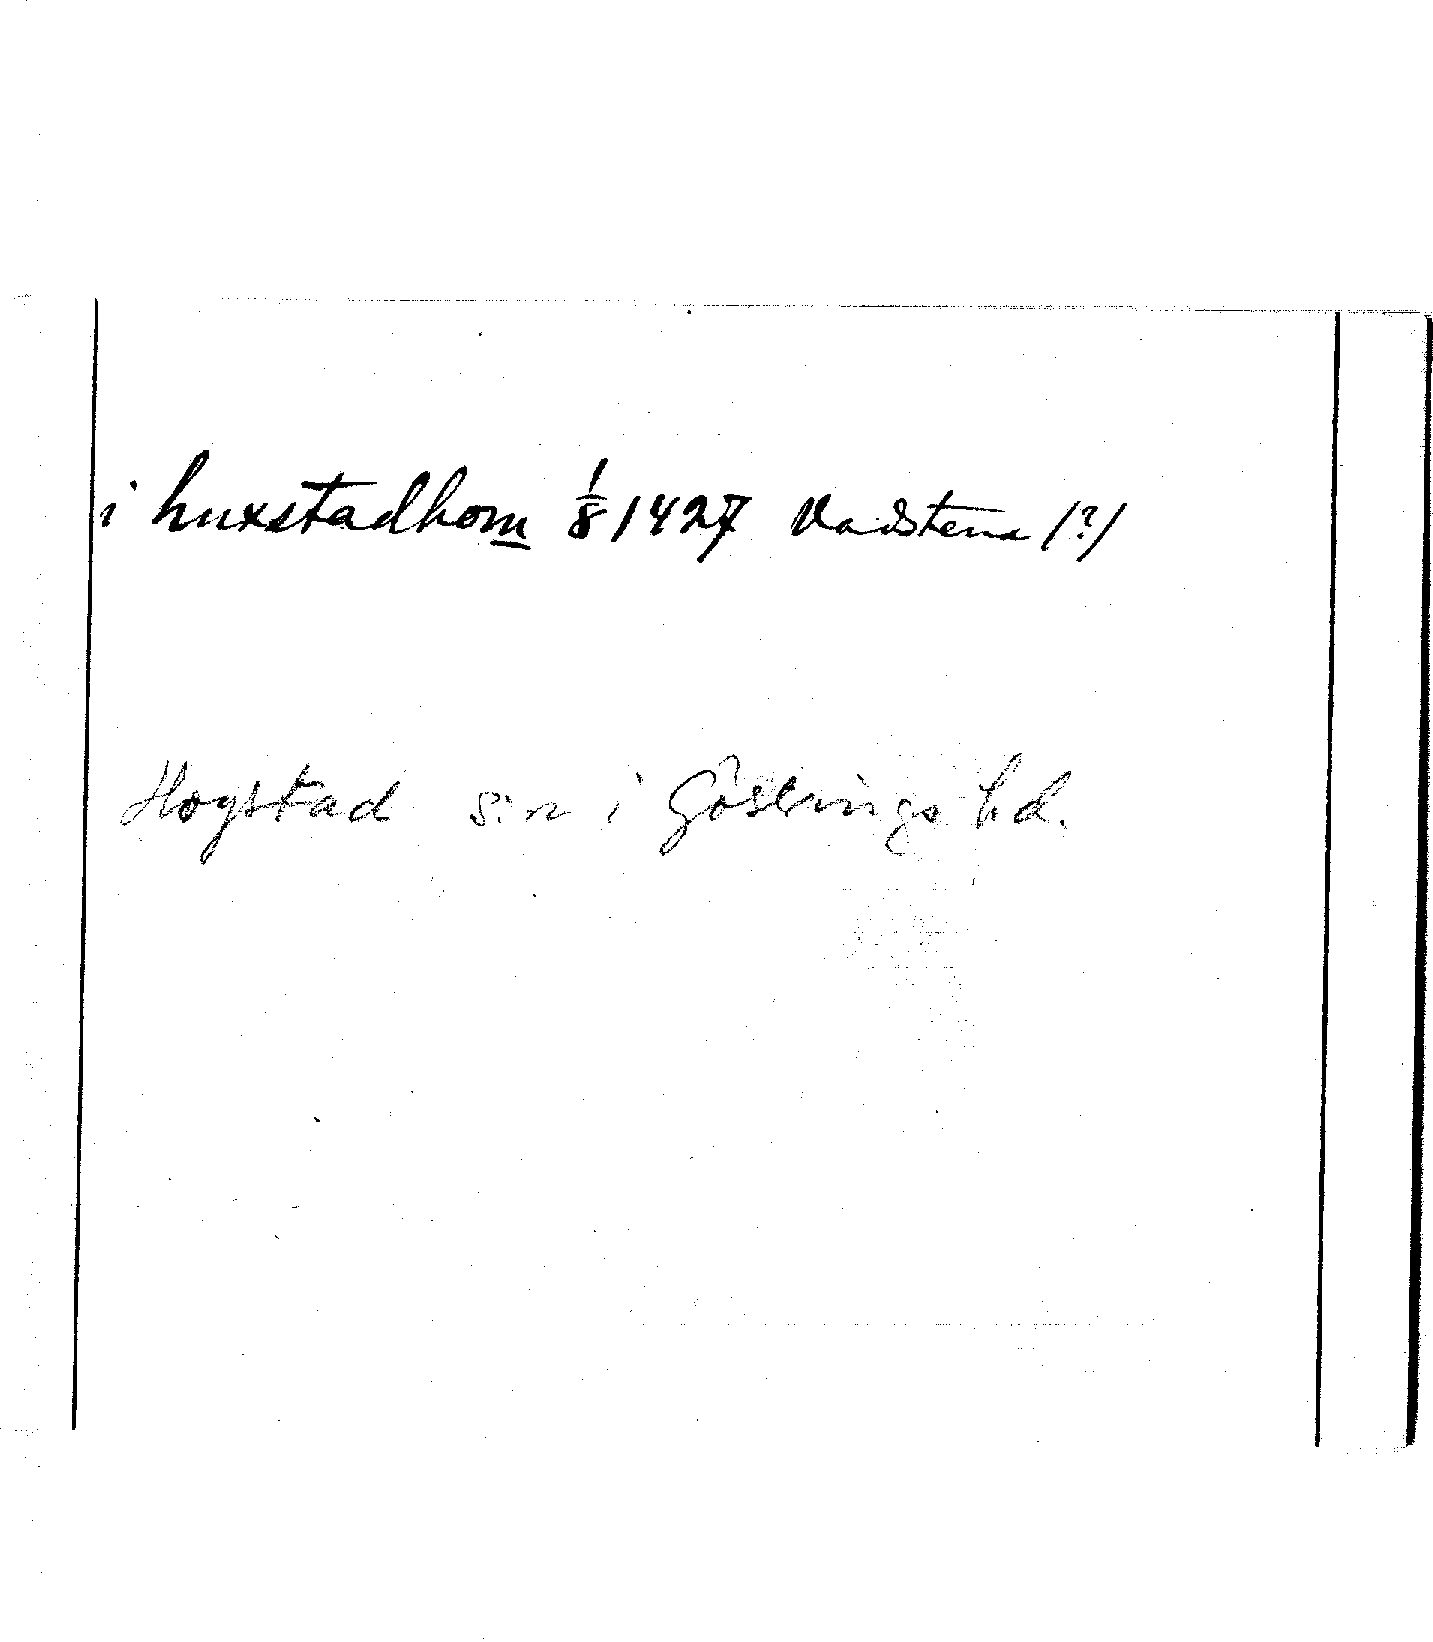 i huxstadhom 1/8 1427 Vadstena /?/
Hogstad s:n i Göstrings hd.